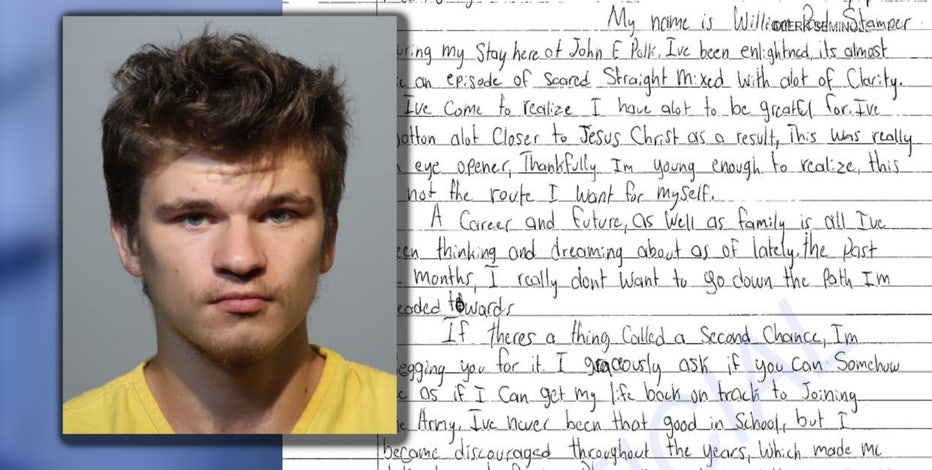 My name is William Stamper
uring my Stay here at John E Polk, Ive been enlightned, its almost
an episode of Scared Straight Mixed With alot of Clarity.
Ive Come to realize I have alot to be greatful for. Ive
otton alot Closer to Jesus Christ as a result, This was really
eye opener, Thankfully Im young enough to realize, this
not the route I want for myself.
A Career and future, as well as family is all Ive
en thinking and dreaming about as of lately. the Past
months, I really dont want to go down the Path Im
eaded towards
If theres a thing Called a Second Chance, Im
egging you for it. I graceously ask if you can Somehow
as if I Can get my life back on track to Joining
Army. Ive never been that good in School, but I
became discouraged throughout the years, Which made me